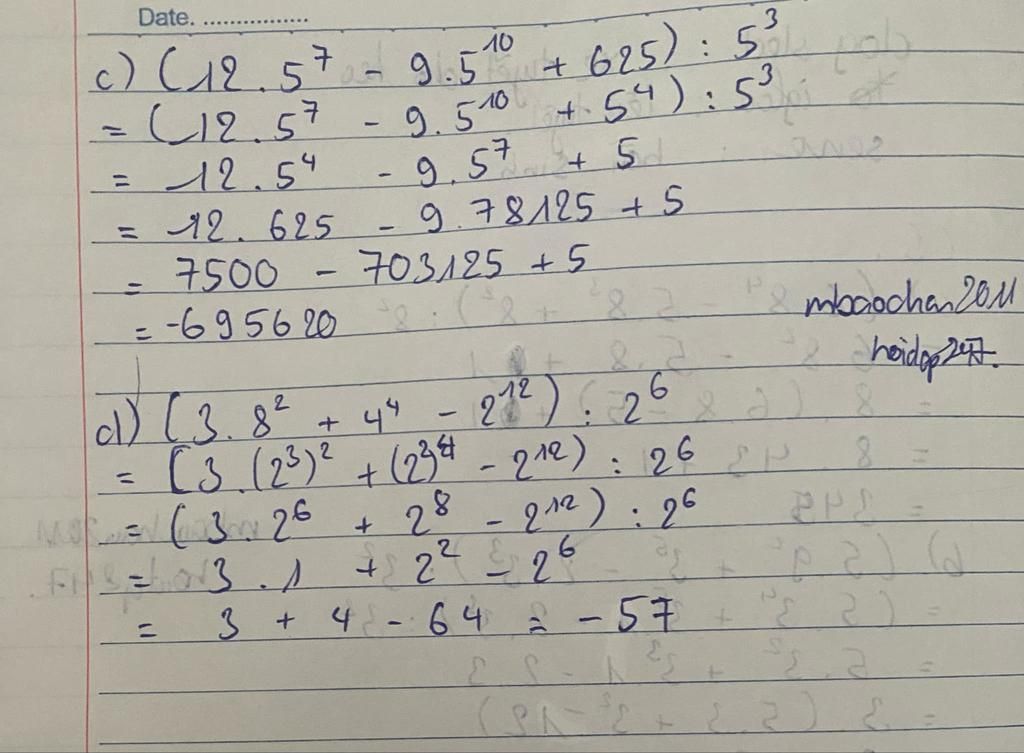 Date. ................
c) (12 . 5⁷ - 9.5¹⁰ + 625) : 5³
= (12 . 5⁷ - 9.5¹⁰ + 5⁴) : 5³
= 12 . 5⁴ - 9.5⁷ + 5
= 12. 625 - 9.78125 + 5
= 7500 - 703125 + 5
= -695620
mbaochan2011
hoidap247.
d) (3. 8² + 4⁴ - 2¹²) : 2⁶
= (3 . (2³)² + (2²)⁴ - 2¹²) : 2⁶
= (3. 2⁶ + 2⁸ - 2¹²) : 2⁶
= 3 . 1 + 2² - 2⁶
= 3 + 4 - 64 = - 57